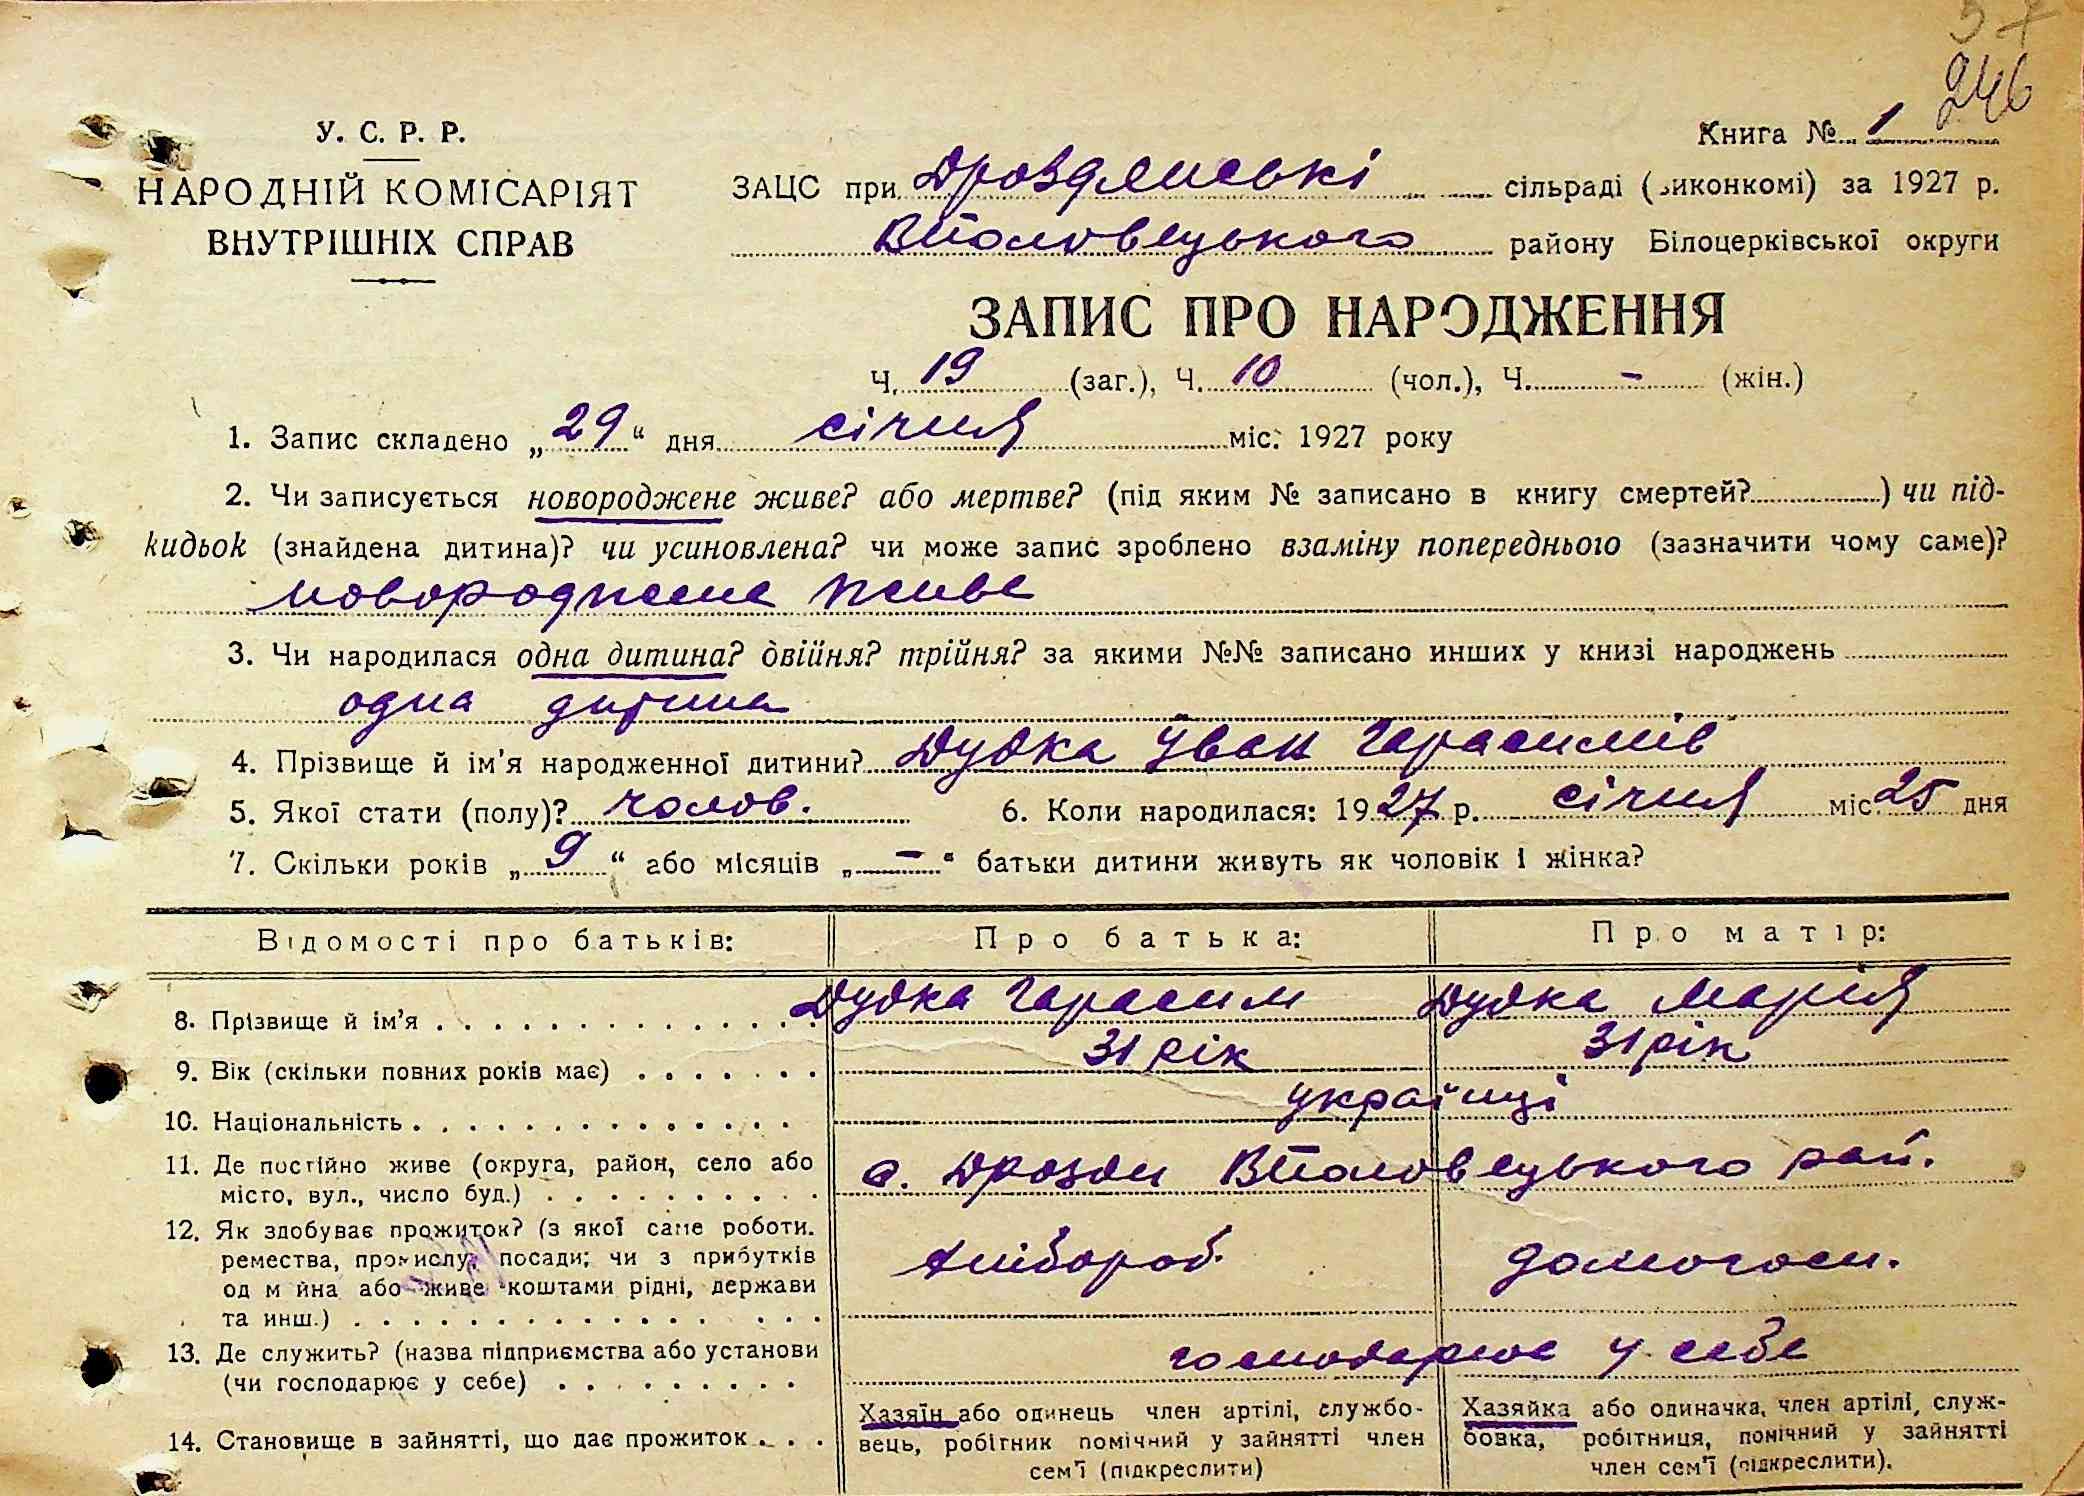 57
246
У. С. Р. Р.
НАРОДНІЙ КОМІСАРІЯТ
ВНУТРІШНІХ СПРАВ
Книга № 1
ЗАЦС при Дроздянські сільраді (виконкомі) за 1927 р.
Вполовецького району Білоцерківської округи
ЗАПИС ПРО НАРОДЖЕННЯ
Ч. 19 (заг.), Ч. 10 (чол.), Ч. - (жін.)
1. Запис складено „29“ дня січня міс. 1927 року
2. Чи записується новороджене живе? або мертве? (під яким № записано в книгу смертей? ) чи під-
кидьок (знайдена дитина)? чи усиновлена? чи може запис зроблено взаміну попереднього (зазначити чому саме)?
новороджене живе
3. Чи народилася одна дитина? двійня? трійня? за якими №№ записано инших у книзі народжень
одна дитина
4. Прізвище й ім'я народженної дитини? Дудка Іван Гарасимів
5. Якої стати (полу)? чолов. 6. Коли народилася: 1927 р. січня міс. 25 дня
7. Скільки років „9“ або місяців „-“ батьки дитини живуть як чоловік і жінка?
Відомості про батьків: Про батька: Про матір:
8. Прізвище й ім'я Дудка Гарасим Дудка Марія
9. Вік (скільки повних років має) 31 рік 31 рік
10. Національність українці
11. Де постійно живе (округа, район, село або
місто, вул., число буд.) с. Дрозди Вполовецького рай.
12. Як здобуває прожиток? (з якої саме роботи.
ремества, промислу, посади; чи з прибутків
од майна або живе коштами рідні, держави
та инш.) хлібороб. домогосп.
13. Де служить? (назва підприємства або установи
(чи господарює у себе) господарює у себе
14. Становище в зайнятті, що дає прожиток
Хазяїн або одинець член артілі, службо-
вець, робітник помічний у зайнятті член
сем'ї (підкреслити)
Хазяйка або одиначка, член артілі, служ-
бовка, робітниця, помічний у зайнятті
член сем'ї (підкреслити).